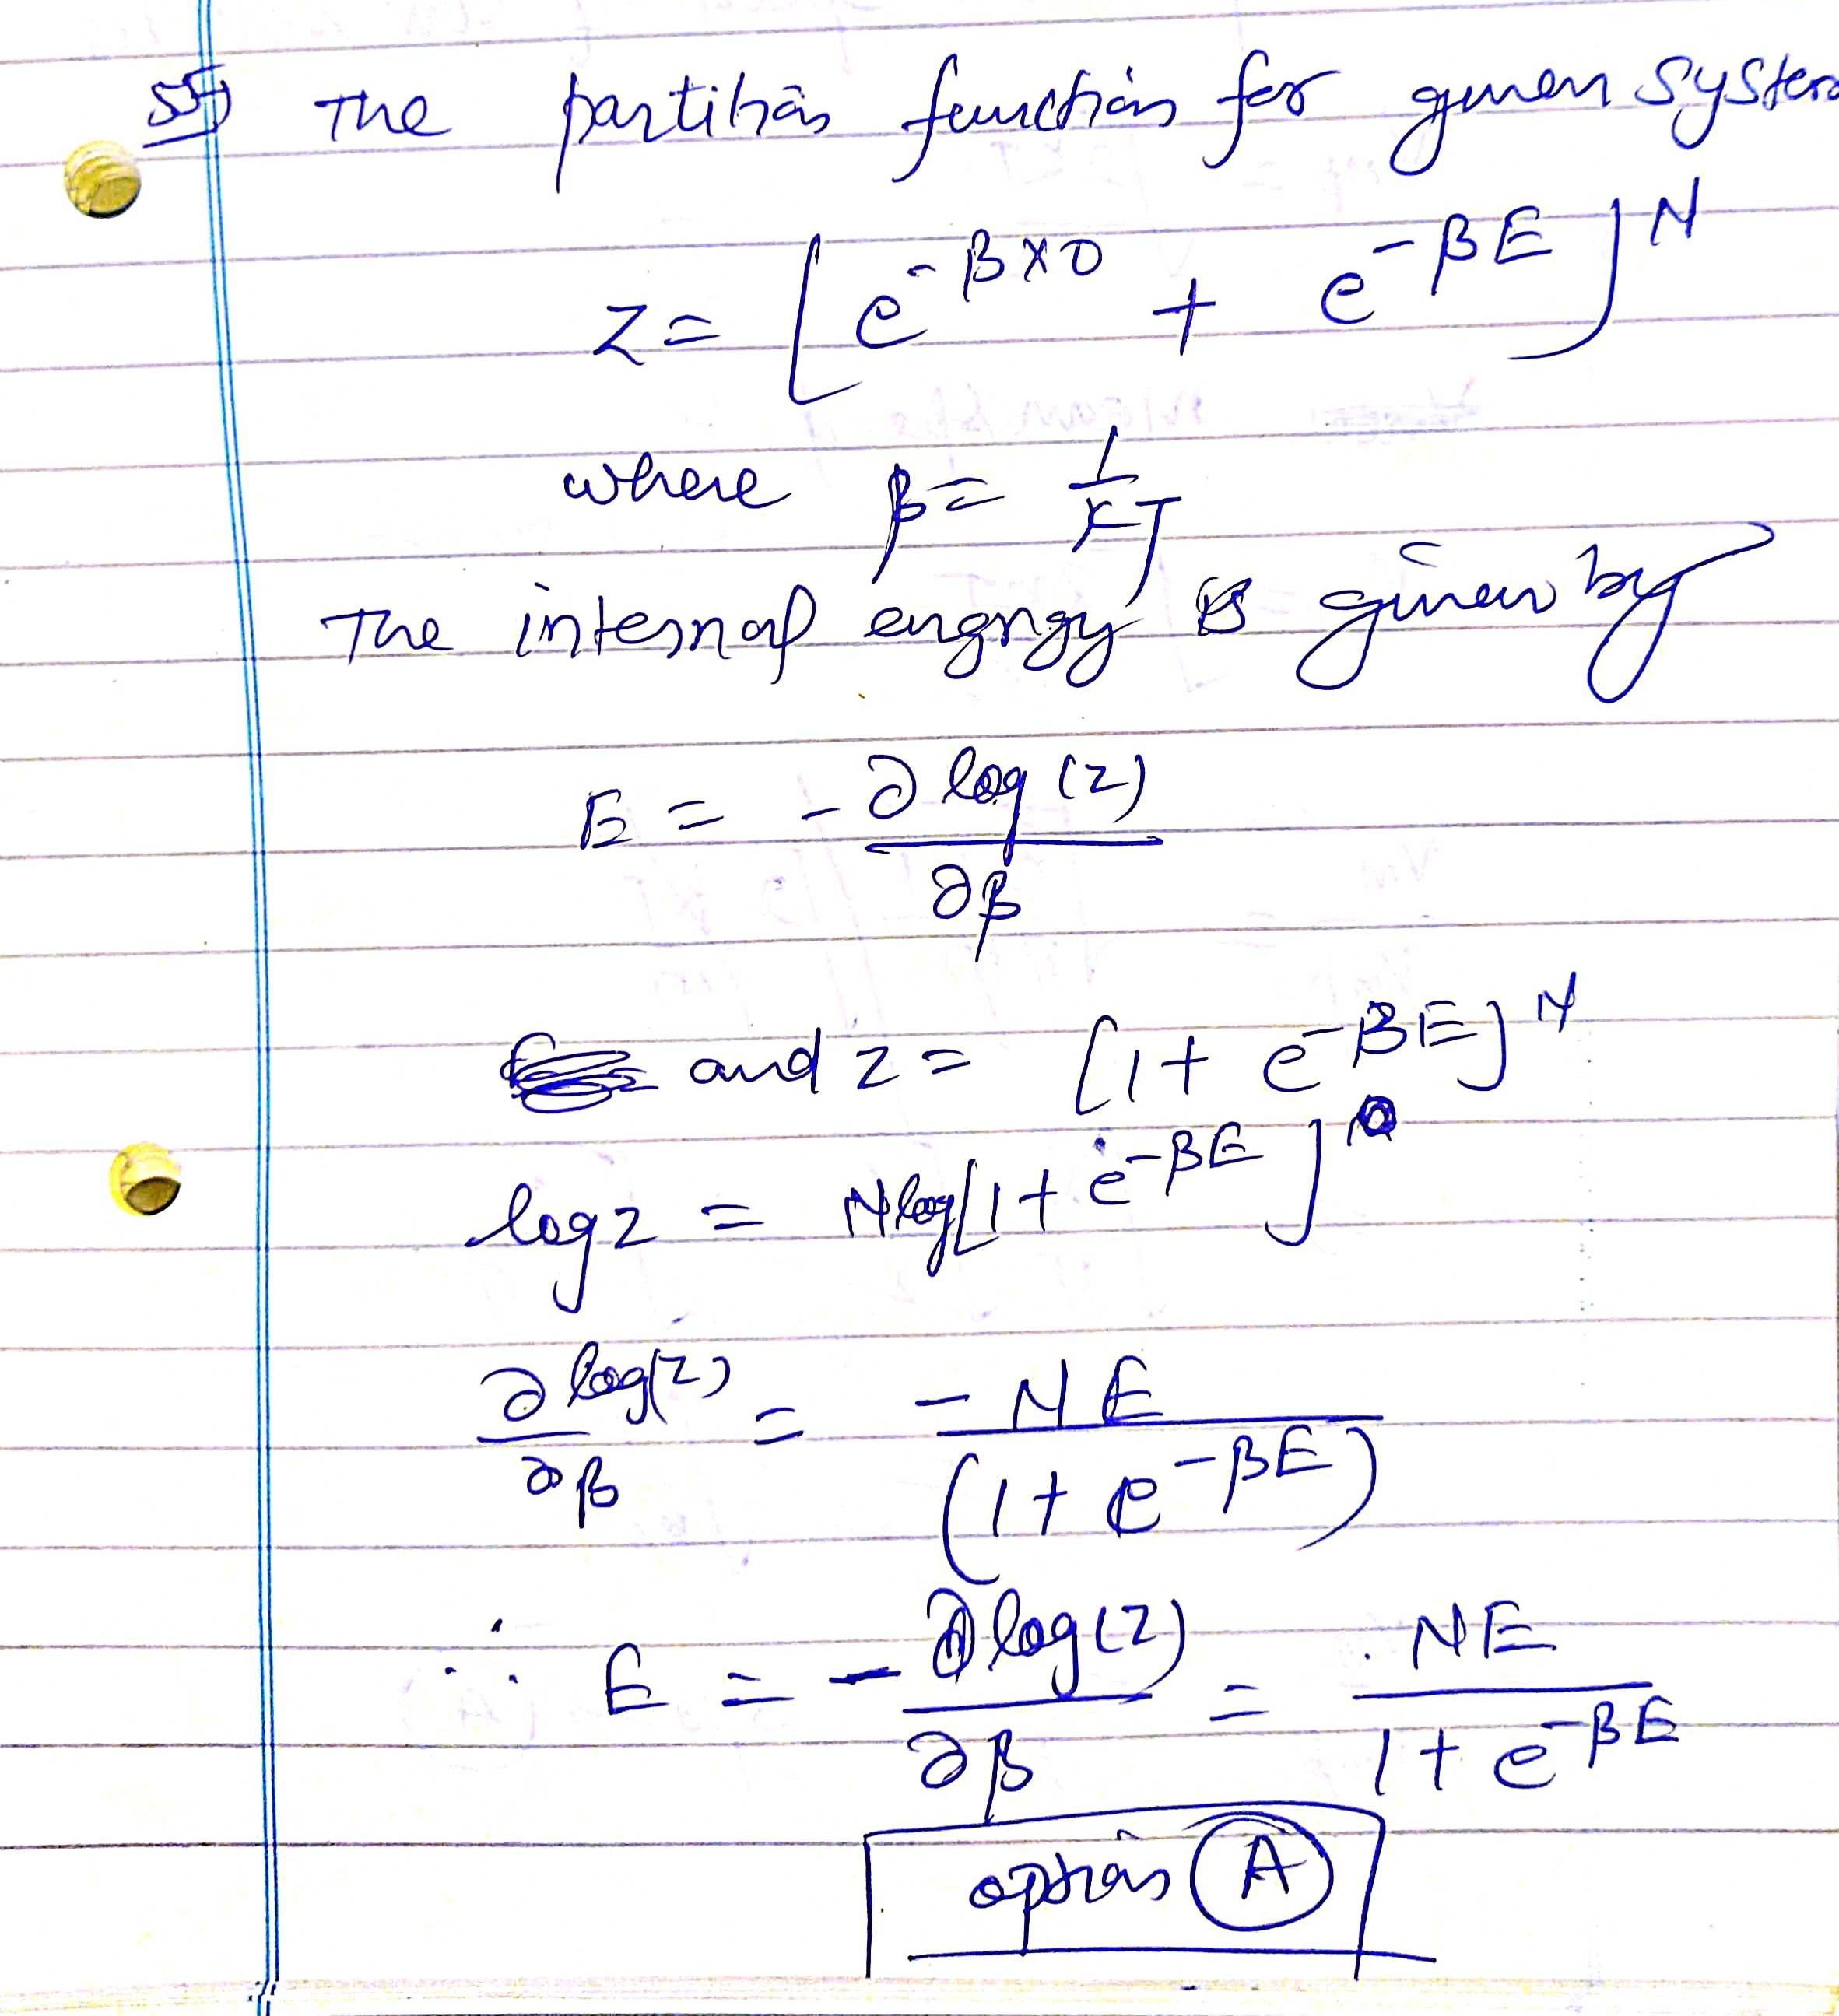 55) The partition function for given system
Z = [e^{-β×0} + e^{-βE}]^N
where β = 1/KT
The internal engrgy is given by
E = - ∂ log (Z) / ∂β
and Z = [1 + e^{-βE}]^N
log Z = N log [1 + e^{-βE}]
∂ log(Z) / ∂β = - N E / (1 + e^{-βE})
∴ E = - ∂ log (Z) / ∂β = NE / 1 + e^{-βE}
option (A)